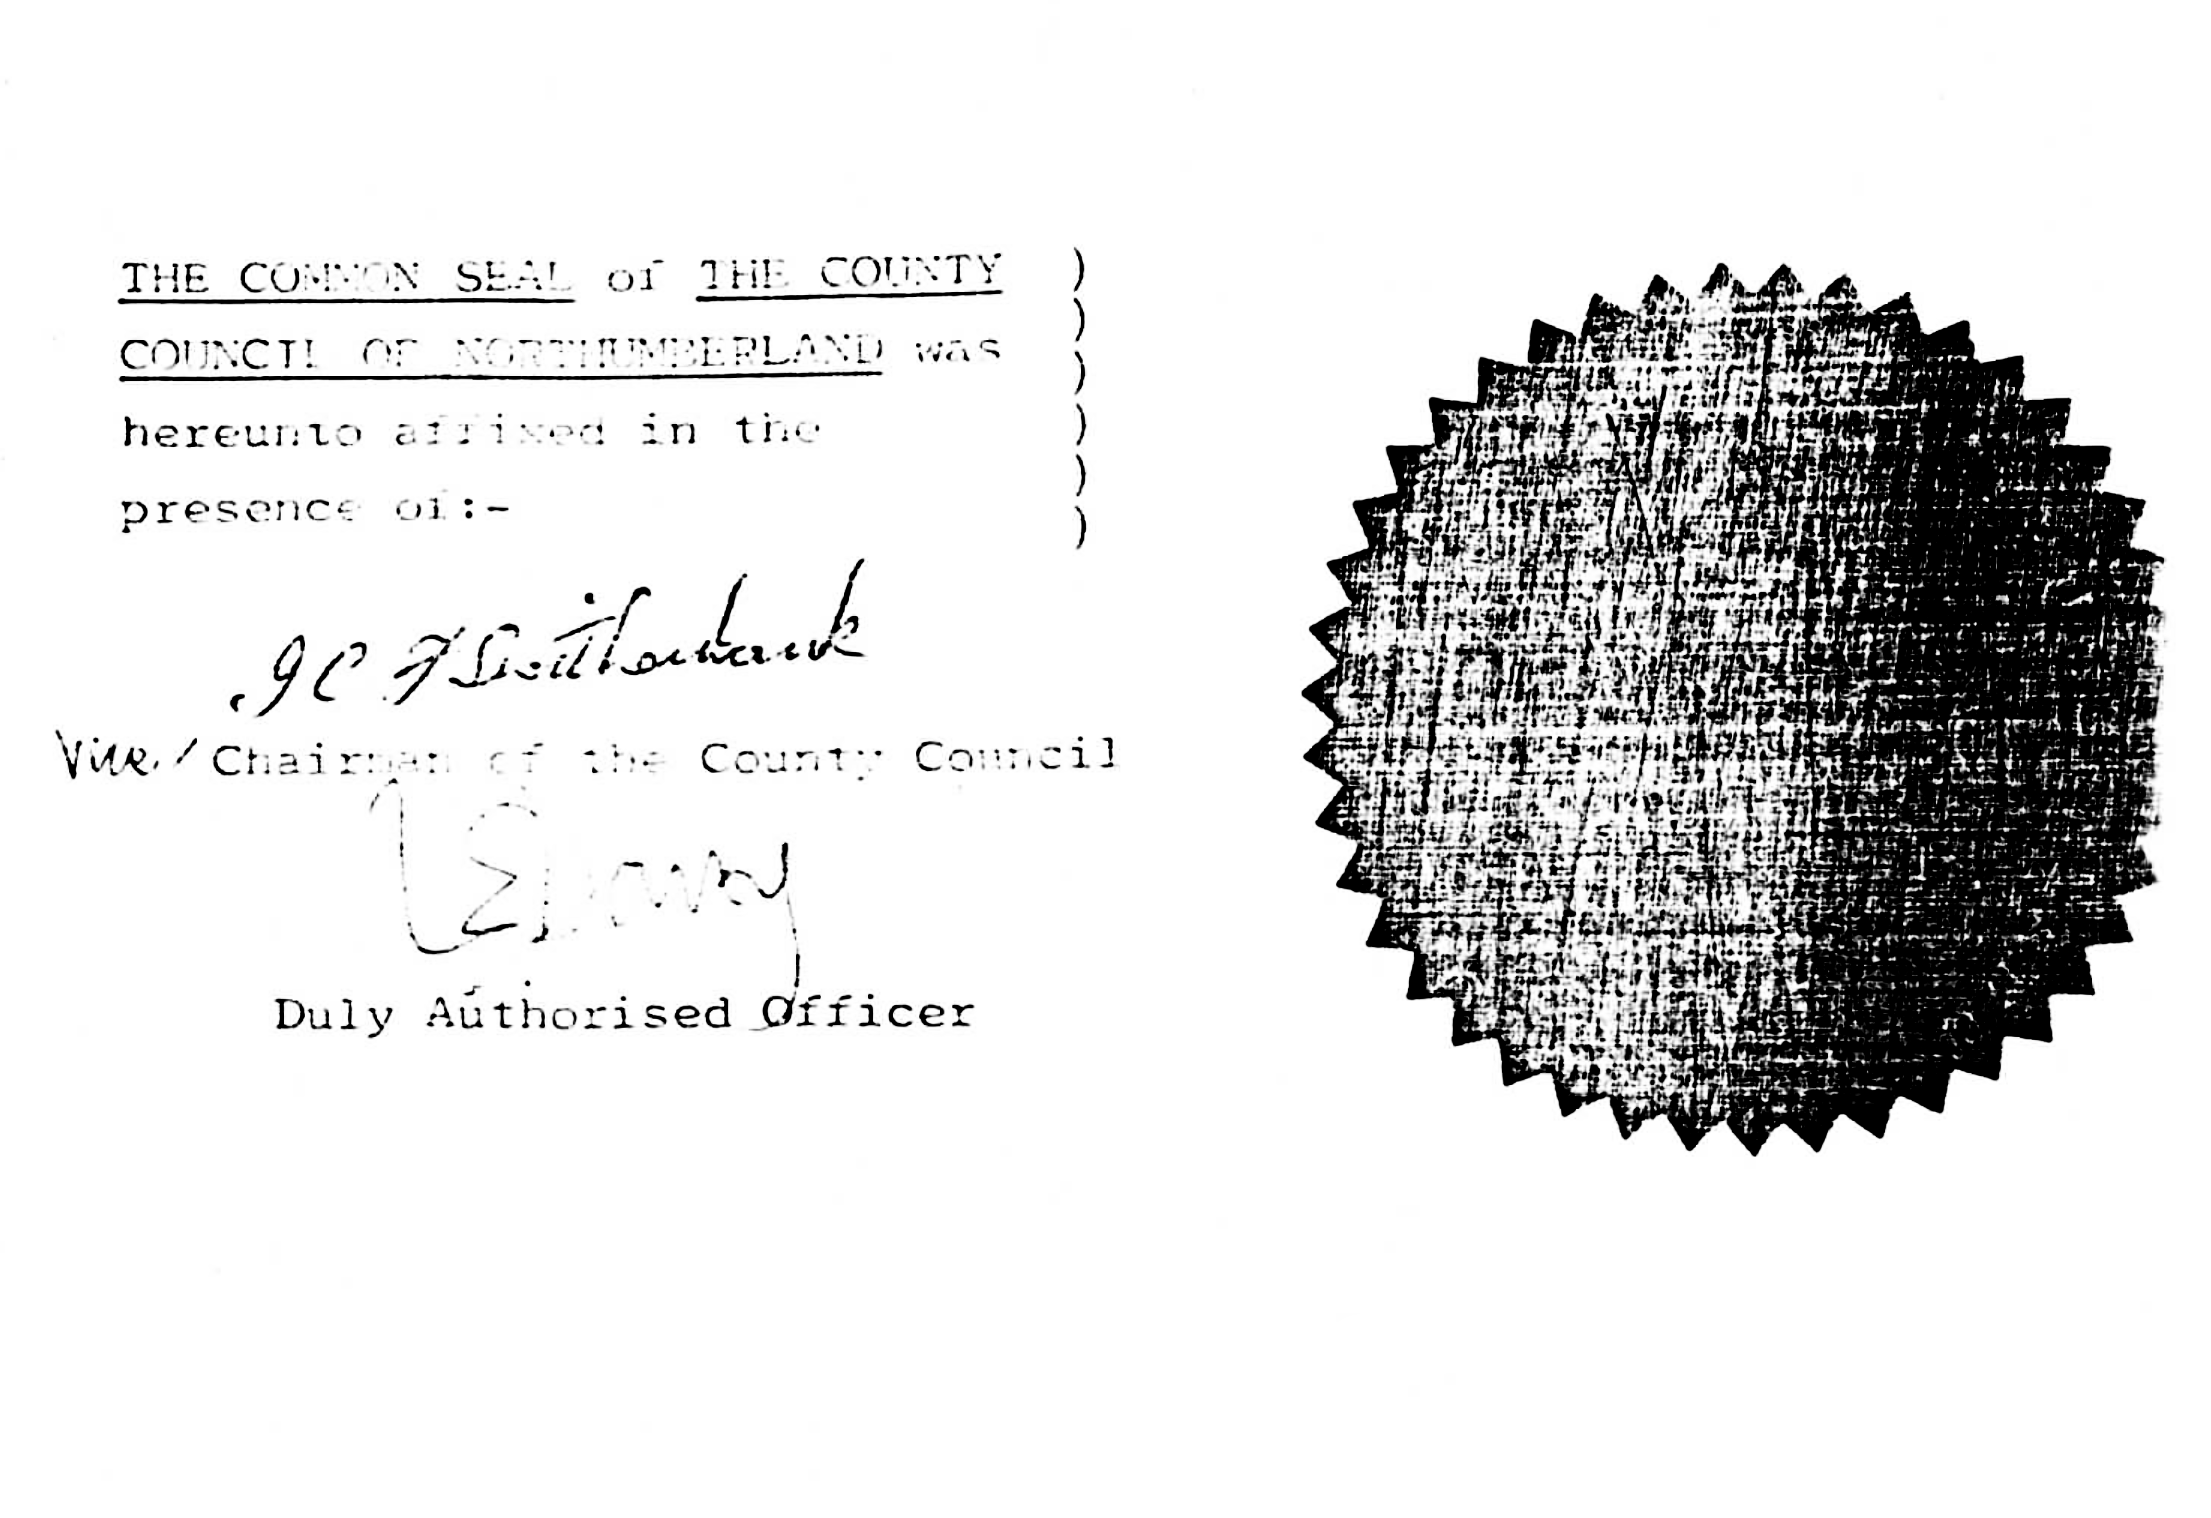 THE COMMON SEAL of THE COUNTY )
COUNCIL OF NORTHUMBERLAND was )
hereunto affixed in the )
presence of:- )
Vice/Chairman of the County Council
Duly Authorised Officer